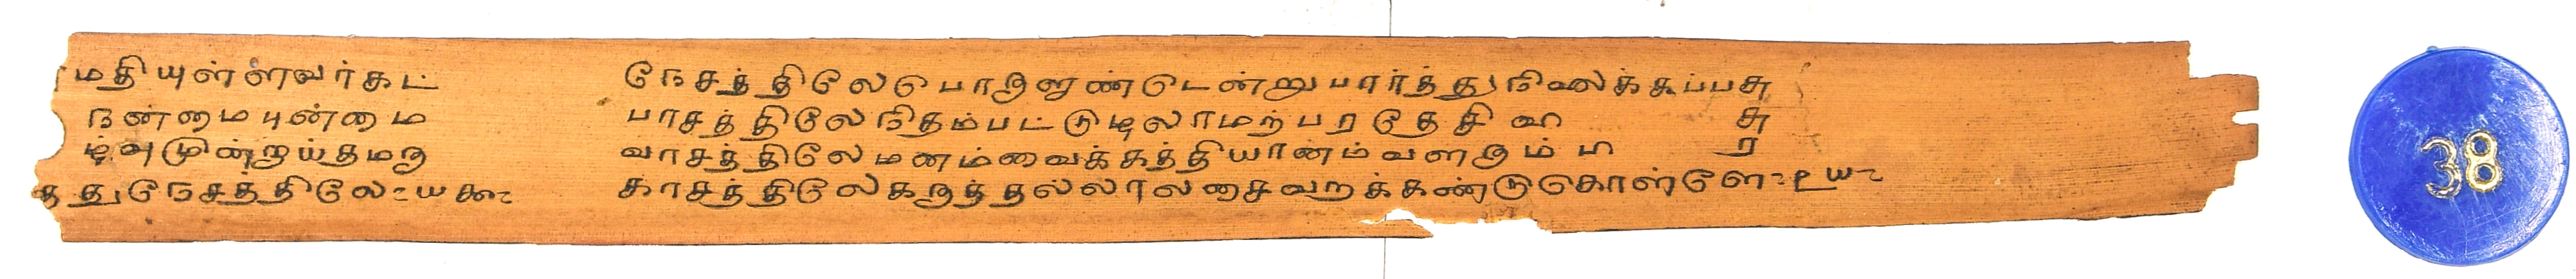 மதியுள்ளவர்கட் நேசத்திலேபொருளுண்டென்றுபார்த்துநிலைக்கூப்பசு
நன்மையுண்மை பாசத்திலேநிதம்பட்டுடிலாமற்பரதேசி
ழ்வுமின்றுய்தமரு வாசத்திலேமனம்வைக்கத்தியானம்வளரும்
த்துநேசத்திலே காசத்திலேகருத்தல்லாலசைவறக்கண்டுகொள்ளே
38